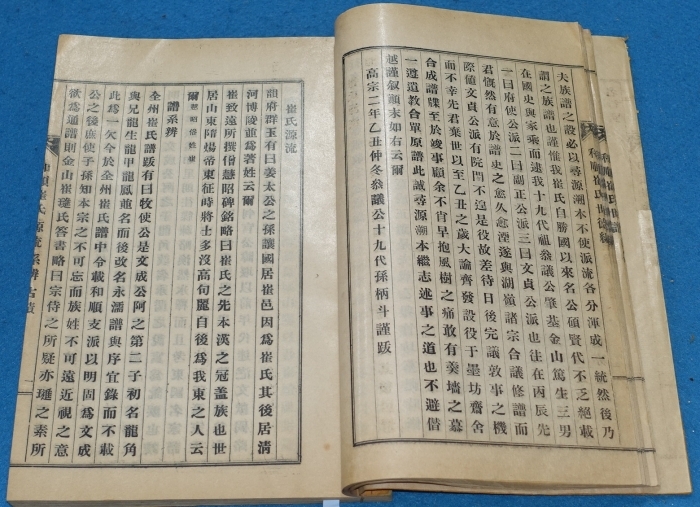 夫族譜之設必以尋源溯本不使派流各分渾成一統然後乃
謂之族譜也謹惟我崔氏自勝國以來名公碩賢代不乏絕載
在國史與家乘而逮我十九代祖叅議公肇基金山篤生三男
一曰府使公派二曰副正公派三曰文貞公派也往在丙辰先
君慨然有意於譜史之愈久愈湮遂與湖嶺諸宗合議修譜而
際値文貞公派有院門不遑是役故差待日後完議敦事之機
而不幸先君棄世以至乙丑之歲大論齊發設役于墨坊齋舍
合成譜牒至於竣事顧余不肖早抱風樹之痛敢有羹墻之慕
一遵遺敎合單原譜此誠尋源溯本繼志述事之道也不避僭
越謹叙顚末如右云爾
高宗二年乙丑仲冬叅議公十九代孫柄斗謹跋
崔氏源流
韻府群玉有曰姜太公之孫讓國居崔邑因爲崔氏其後居淸
河博陵並爲著姓云爾
崔致遠所撰僧慧昭碑銘略曰崔氏之先本漢之冠盖族也世
居山東隋煬帝東征時將士多沒高句麗自後爲我東之人云
爾 慧昭俗姓崔
譜系辨
全州崔氏譜跋有曰牧使公是文成公阿之第二子初名龍角
與兄龍生龍甲龍鳳並名而後改名永濡譜與序宜錄而不載
此爲一欠今於全州崔氏譜中令載和順支派以明固爲文成
公之後庶使子孫知本宗之不可忘而族姓不可遠近視之意
欲爲通譜則金山崔璡氏答書略曰宗侍之所疑亦璡之素所
和順崔氏源流系辨古蹟